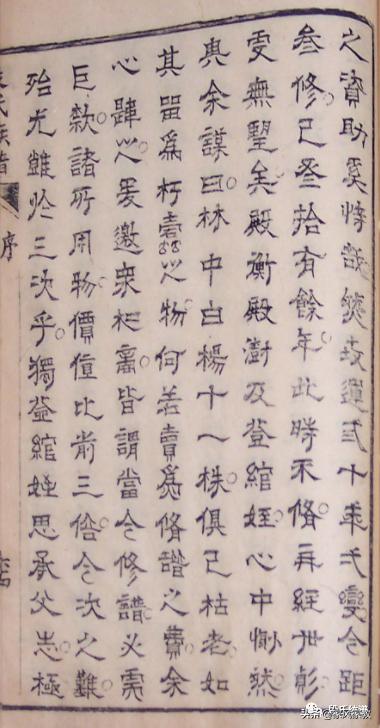 之資助奚恃哉然世道弍十年弌變今距
叁修已叁拾有餘年此時不脩再經世彰
雯無望矣殿衡殿澍及登綰姪心中惻然
與余謀曰林中白楊十八株俱已枯老如
其畱爲朽蠹之物何若賣爲脩譜之費余
心韙之爰邀衆相商皆謂當今修譜必需
巨款諸所用物價值比前三倍今次之難
殆尤雖於三次乎獨登綰姪思承父志極
氏族譜 序
段氏统谱
头条